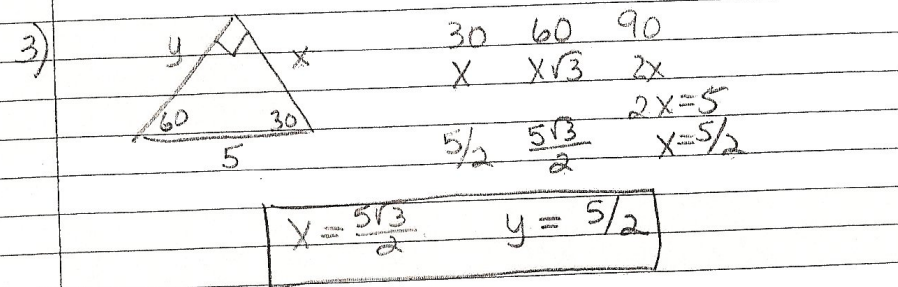 3)
y x
60 30
5
30 60 90
x x√3 2x
2x=5
5/2 5√3/2 x=5/2
x = 5√3/2 y = 5/2